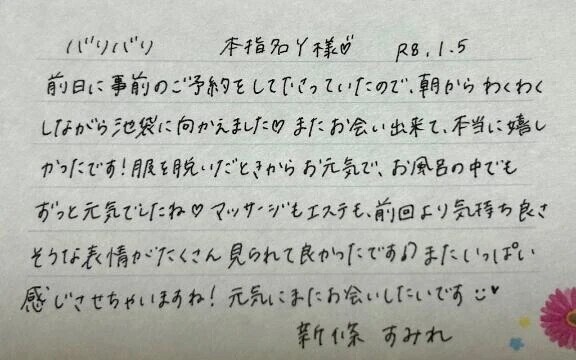 バリバリ 本指名Y様♡ R8.1.5
前日に事前のご予約をして下さっていたので、朝からわくわく
しながら池袋に向かえました♡ またお会い出来て、本当に嬉し
かったです！服を脱いだときからお元気で、お風呂の中でも
ずっと元気でしたね♡ マッサージもエステも、前回より気持ち良さ
そうな表情がたくさん見られて良かったです♪ またいっぱい
感じさせちゃいますね！ 元気にまたお会いしたいです☺♥
新條 すみれ